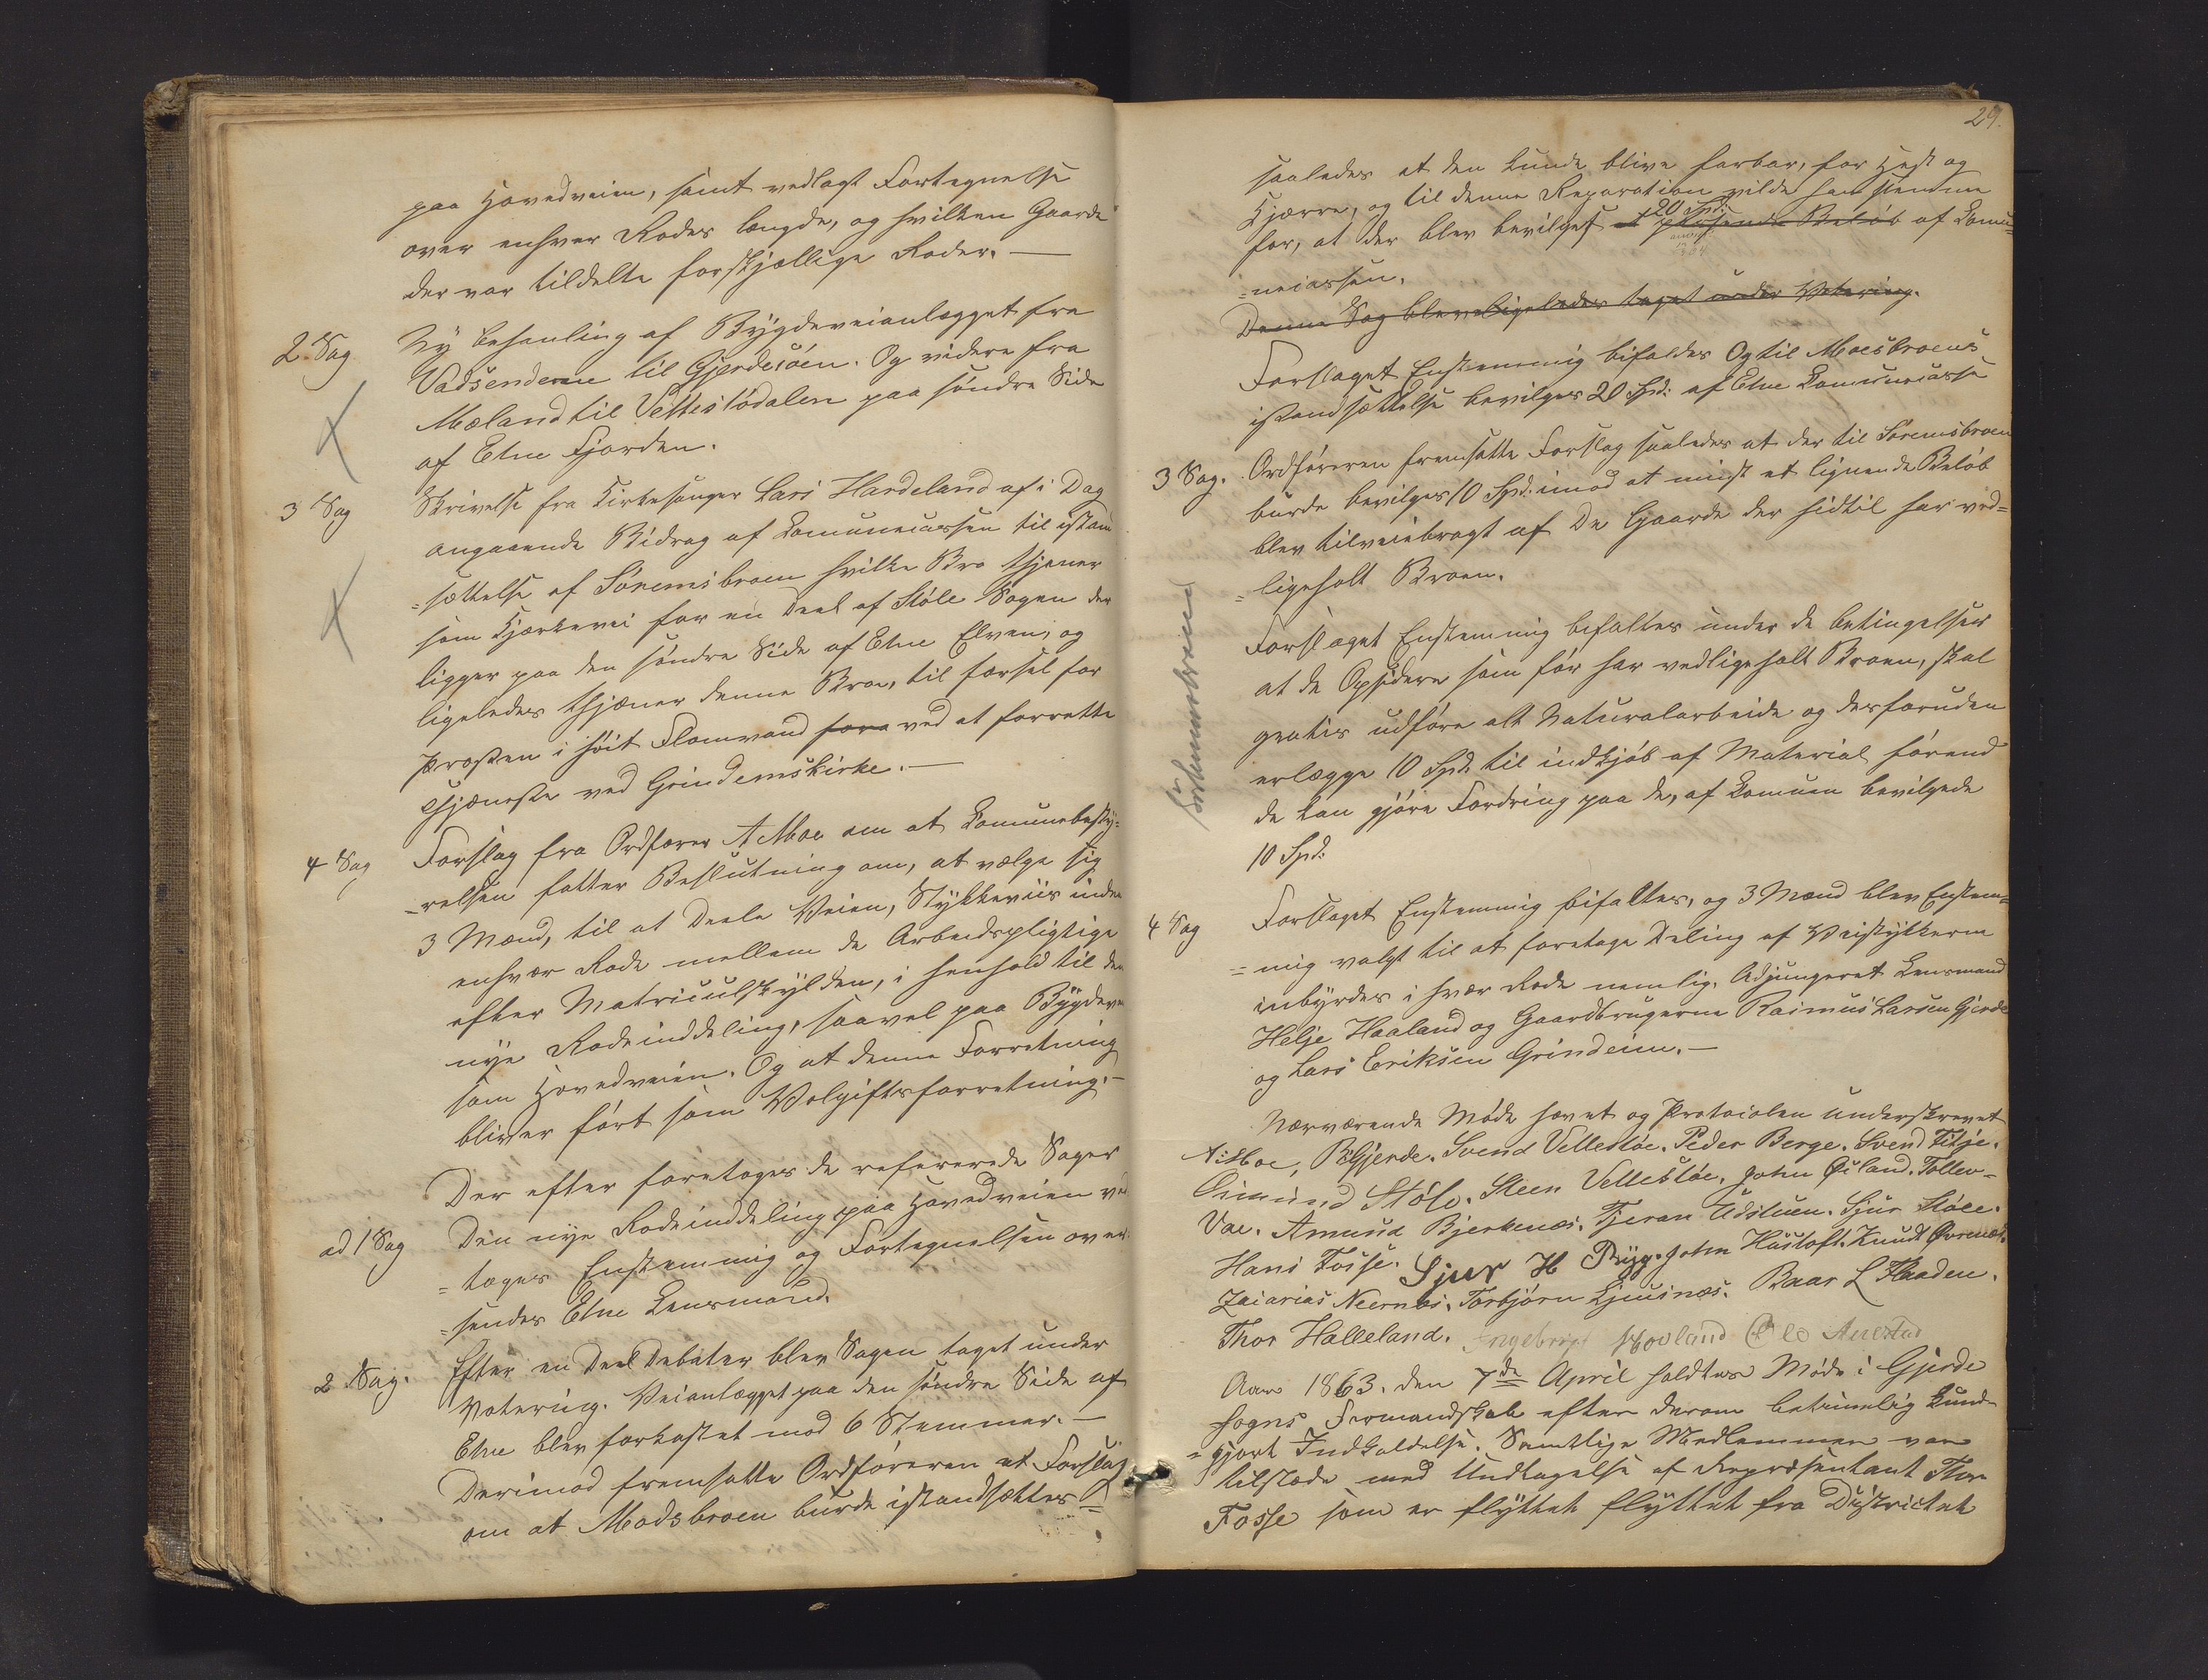 paa Hovedveien, samt vedlagt Fortegnelse
over enhver Rodes længde, og hvilken Gaarde
der var tildelte forskjællige Roder. —
2 Sag Ny behanling af Bygdeveianlægget fra
Vadsenderne til Gjerdesöen. Og videre fra
Mæland til Vettestödalen paa söndre Side
af Etne Fjorden.
3 Sag Skrivelse fra Kirkesanger Lars Hardeland af i Dag
angaaende Bidrag af Komunecassen til istan
=sættelse af Söremsbroen hvilke Bro thjener
som Kjærkevei for en Deel af Stöle Sogen der
ligger paa den söndre Side af Etne Elven, og
ligeledes thjæner denne Broe, til farsel for
Prosten i höit Flomvand fore ved at forrette
Thjæneste ved Grindemskirke. —
4 Sag Forslag fra Ordförer A Moe om at Komunebesty=
=relsen fatter Beslutning om, at vælge sig
3 Mænd, til at Deele Veien, Stykkeviis inden
enhvær Rode mellem de Arbeidspligtige
efter Matriculskylden, i henhold til den
nye Rodeinddeling, saavel paa Bygdevei
som Hovedveien. Og at denne Forretning
bliver fört som Volgiftsforretning. —
Der efter foretoges de refererede Sager
ad 1 Sag Den nye Rodeinddeling paa Hovedveien ved
=tages Enstemmig og Fortegnelsen over
=sendes Etne Lensmand.
2 Sag. Efter en Deel Debater blev Sagen taget under
Votering. Veianlægget paa den söndre Side af
Etne blev forkastet mod 6 Stemmer. —
Derimod fremsatte Ordföreren et Forslag
om at Modsbroen burde istandsættes =
29.
saaledes at den kunde blive farbar, for Hest og
Kjærre, og til denne Reparation vilde han stemme
20 Spd:
for, at der blev bevilget et passende Belöb af Komu=
=necassen.
Denne Sag blev ligeledes taget under Votering.
Forslaget Enstemmig bifaldes Og til Moesbroens
istandsættelse bevilges 20 Spd: af Etne Komunecasse
3 Sag. Ordföreren fremsatte Forslag saaledes at der til Söremsbroen
burde bevilges 10 Spd. imod at minst et lignende Belöb
blev tilveiebragt af De Gaarde der hidtil har ved=
=ligeholt Broen.
Sörheimsbrüene
Forslaget Enstemmig befaltes under de betingelser
at de Opsidere som för har vedligeholt Broen, skal
gratis udföre alt Naturalarbeide og desforuden
erlægge 10 Spd. til indkjöb af Material förend
de kan gjöre Fordring paa de, af Komuen bevilgede
10 Spd:
4 Sag Forslaget Enstemmig bifaltes, og 3 Mænd blev Enstem=
=mig valgt til at foretage Deling af Veistykkerne
inbyrdes i hvær Rode nemlig. Adjungeret Lensmand
Helje Haaland og Gaardbrugerne Rasmus Larsen Gjerde
og Lars Eriksen Grindeim. —
Nærværende Möde hævet og Protocolen underskrevet
A. Moe, B Gjerde. Svend Vellestöe. Peder Berge. Svend Fitje.
Osmund Stöle. Steen Vellestöe. John Øiland. Tollev
Vae. Amund Bjerkenæs. Tjeran Udstuen. Sjur Stöle.
Hans Fosse. Sjur H Ryg. John Hustoft. Knudt Øvrenæs.
Zacarias Neernæs. Torbjörn Ljusnæs. Baar L Flaaden.
Thor Halleland. Ingebrigt Hovland Ole Auestad
Aar 1863. den 7de April holdtes Möde i Gjerde
Sogns Formandskab efter derom betimelig kund
=gjort Indkaldelse. Samtlige Medlemmer var
tilstede med Undtagelse af Repræsentant Thor
Fosse som er flyttet flyttet fra Districtet